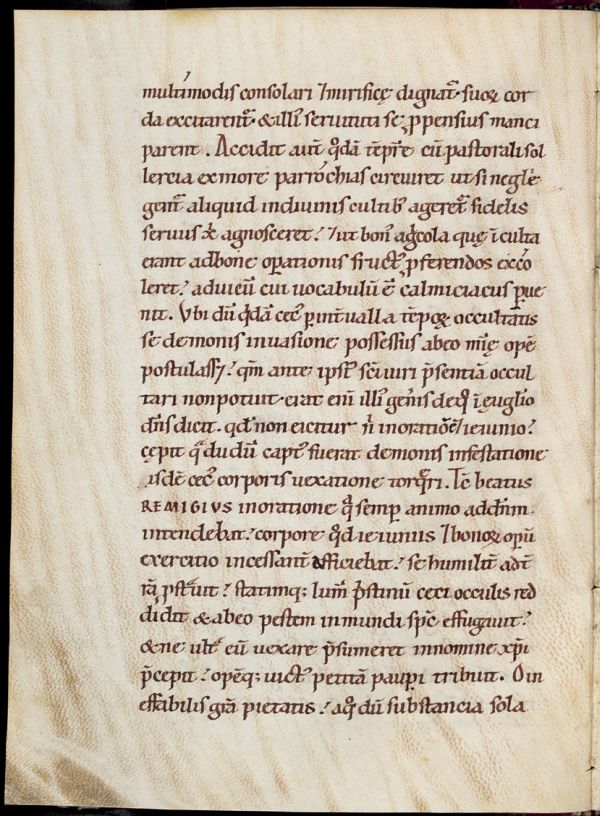 multimodis consolari ⁊ mirificę dignat̄. suoꝝ cor
da excitarent̄. & illi᷒ seruituti se ꝓpensius manci
parent. Accidit aut̄ q̄dā tēpr̄e cū pastorali sol
lercia ex more parrochias circuiret ut si negle
gent̄ aliquid in diuinis cultib; ageret̄ fidelis
seruus d̄i agnosceret? ⁊ ut bon᷒ agͥcola quę īculta
erant ad bonę oꝑationis fruct᷒ ꝓferendos exco
leret? ad uicū cui uocabulū ē calmiciacus ꝑue
nit. Vbi dū q̄dā cec᷒ ꝑ int̄ualla tēpoꝝ occultātis
se demonis inuasione possessus ab eo mīę opē
postulass&? qm̄ ante ipsī᷒ sc̄i uiri p̄sentiā occul
tari non potuit. erat enī illi᷒ gen̄is de q̊ ī ęuglio
dn̄s dicit. qd̄ non eicitur n̄ in oratiōe ⁊ ieiunio?
cępit qͣ dudū capt᷒ fuerat demonis infestatione
isdē cec᷒ corporis uexatione torq̄ri. Tē beatus
REMIGIVS in oratione q̄ semꝑ animo ad dn̄m
intendebat? corpore q̊d ieiuniis ⁊ bonoꝝ oꝑū
exercitio incessant̄ afficiebat? se humilit̄ ad t̄
rā pstͣuit? statimq; lum̄ p̄stinū ceci occulis red
didit & ab eo pestem inmundi sp̄c effugauit?
& ne ult̄᷒ eū uexare p̄sumeret in nomine xp̄i
p̄cepit? opēq; uict᷒ petitā pauꝑi tribuit. O in
effabilis gr̄a pietatis? a q̊ dū substancia sola